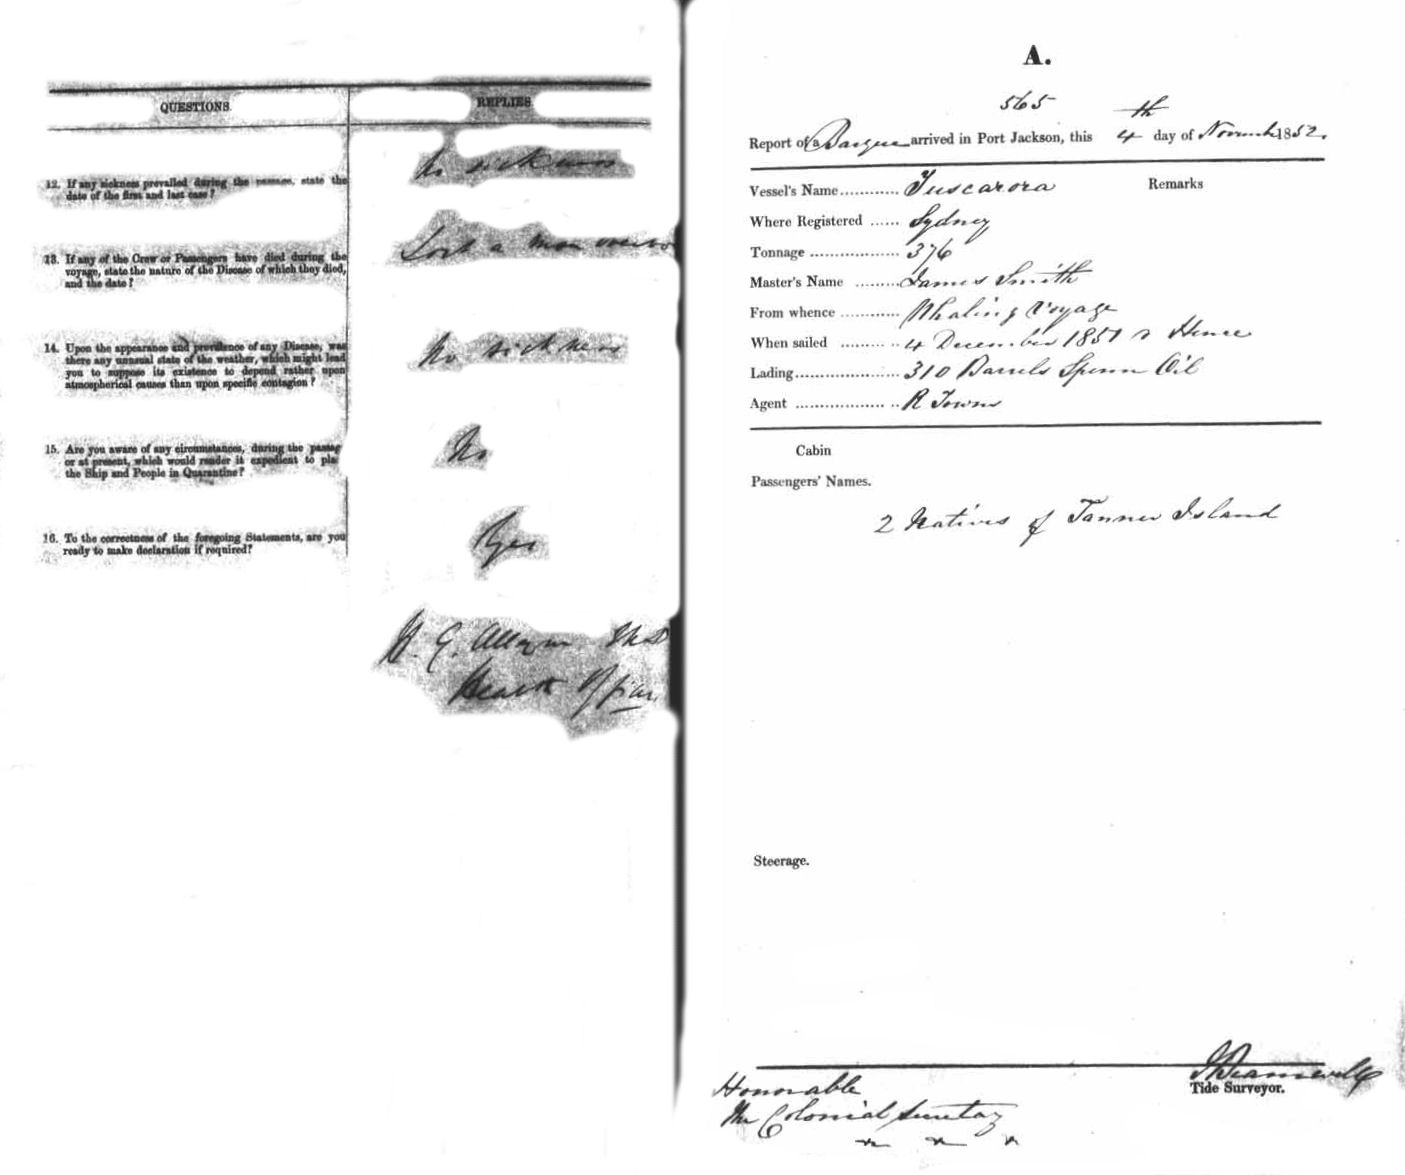 QUESTIONS.
REPLIES.
12. If any sickness prevailed during the passage, state the
date of the first and last case?
No sickness
13. If any of the Crew or Passengers have died during the
voyage, state the nature of the Disease of which they died,
and the date?
Lost a man overbo
14. Upon the appearance and prevalence of any Disease, was
there any unusual state of the weather, which might lead
you to suppose its existence to depend rather upon
atmospherical causes than upon specific contagion?
No sickness
15. Are you aware of any circumstances, during the passag
or at present, which would render it expedient to pla
the Ship and People in Quarantine?
No
16. To the correctness of the foregoing Statements, are you
ready to make declaration if required?
Yes
H. G. Alleyne
Health Officer
A.
565
Report of a Barque arrived in Port Jackson, this 4th day of November 1852.
Vessel's Name............ Tuscarora
Remarks
Where Registered ...... Sydney
Tonnage .................. 376
Master's Name ......... James Smith
From whence ............ Whaling Voyage
When sailed ............ 4 December 1851 Hence
Lading..................... 310 Barrels Sperm Oil
Agent .................... R Towns
Cabin
Passengers' Names.
2 Natives of Tanner Island
Steerage.
Tide Surveyor.
Honorable
The Colonial Secretary